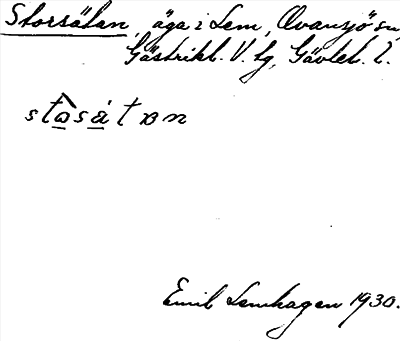 Storsätan, äga i Lem, Ovansjö sn,
Gästrikl. V. tg, Gävleb. l.
stɷ̀sá̤tɒn
Emil Lemhagen 1930.